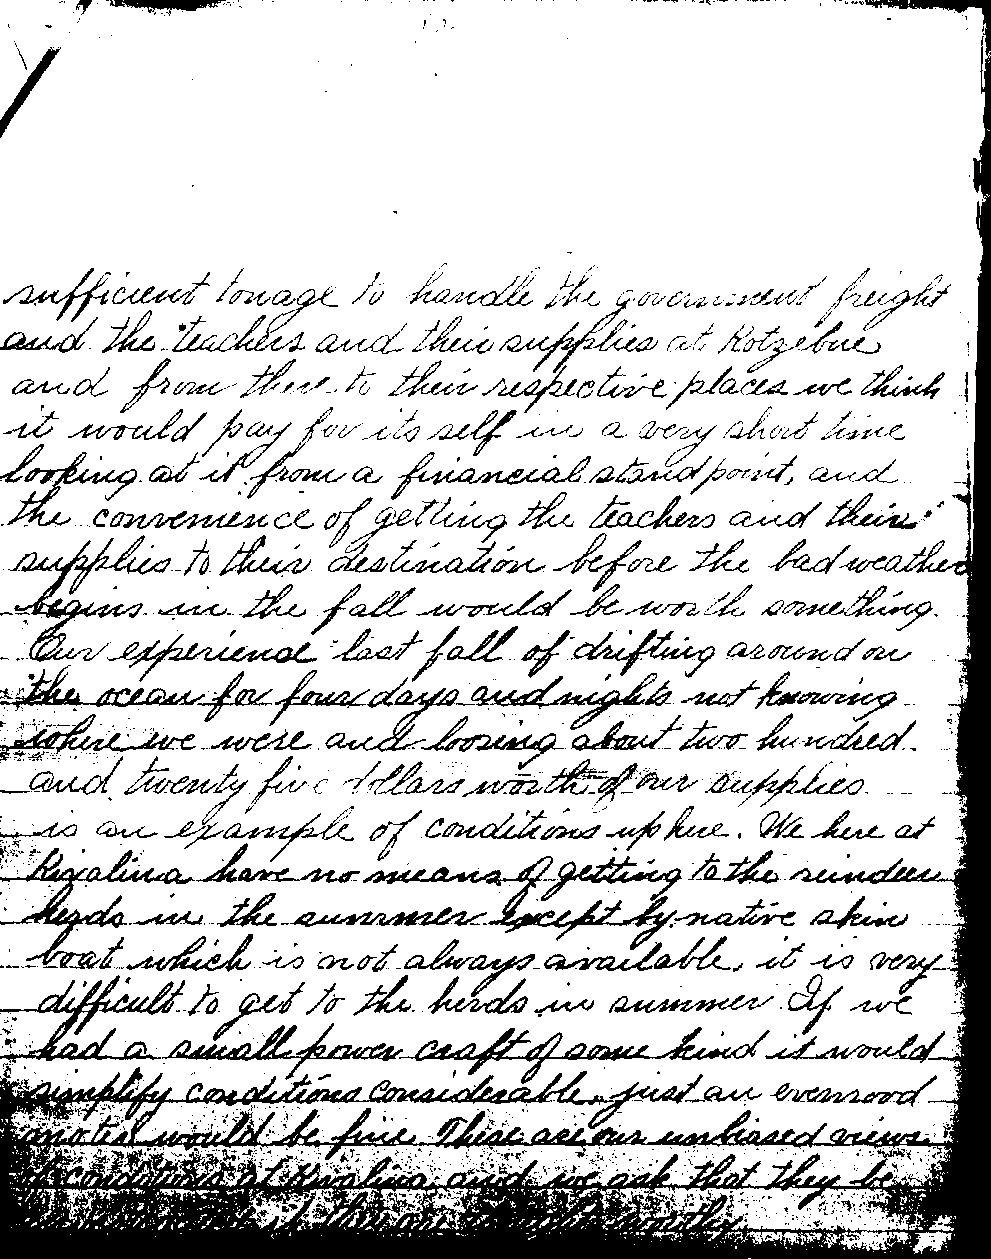 sufficient tonage to handle the government freight
and the teachers and their supplies at Kotzebue
and from there to their respective places we think
it would pay for its self in a very short time
looking at it from a financial standpoint, and
the convenience of getting the teachers and their
supplies to their destination before the bad weather
begins in the fall would be worth something.
Our experience last fall of drifting around on
the ocean for four days and nights not knowing
where we were and loosing about two hundred
and twenty five dollars worth of our supplies
is an example of conditions up here. We here at
Kivalina have no means of getting to the reindeer
herds in the summer except by native skin
boat which is not always available, it is very
difficult to get to the herds in summer If we
had a small power craft of some kind it would
simplify conditions considerable, just an evenrood
motor would be fine. These are our unbiased views
of conditions at Kivalina and we ask that they be
if they are